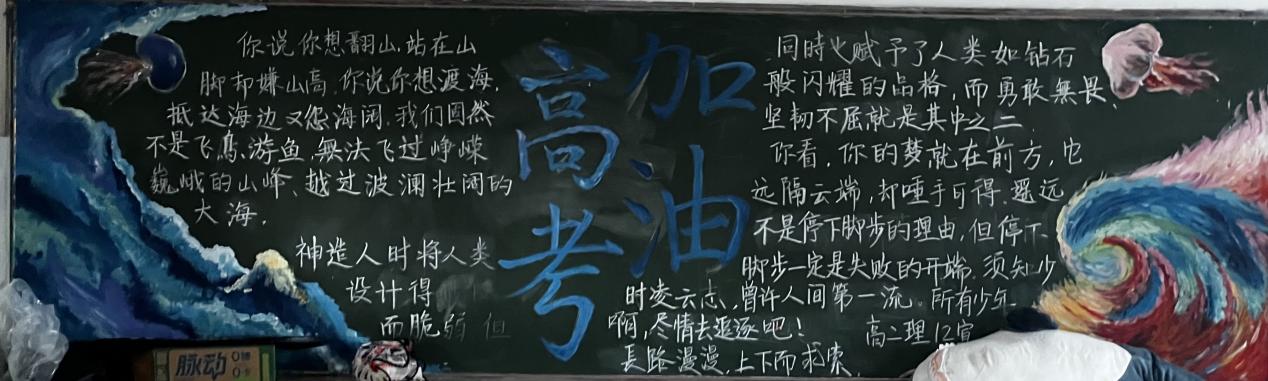 你说你想翻山,站在山
脚却嫌山高,你说你想渡海,
抵达海边又怨海阔,我们固然
不是飞鳥、游鱼,無法飞过峥嵘
巍峨的山峰、越过波澜壮阔的
大海,
神造人时将人类
设计得
而脆弱 但
高考
加油
同時也赋予了人类如钻石
般闪耀的品格,而勇敢無畏、
坚韧不屈就是其中之二.
你看,你的梦就在前方,它
远隔云端,却唾手可得.遥远
不是停下脚步的理由,但停下
脚步一定是失败的开端.须知少
时凌云志,曾许人间第一流.所有少年
啊,尽情去追逐吧!
長路漫漫,上下而求索.
高二理12宣
脉动